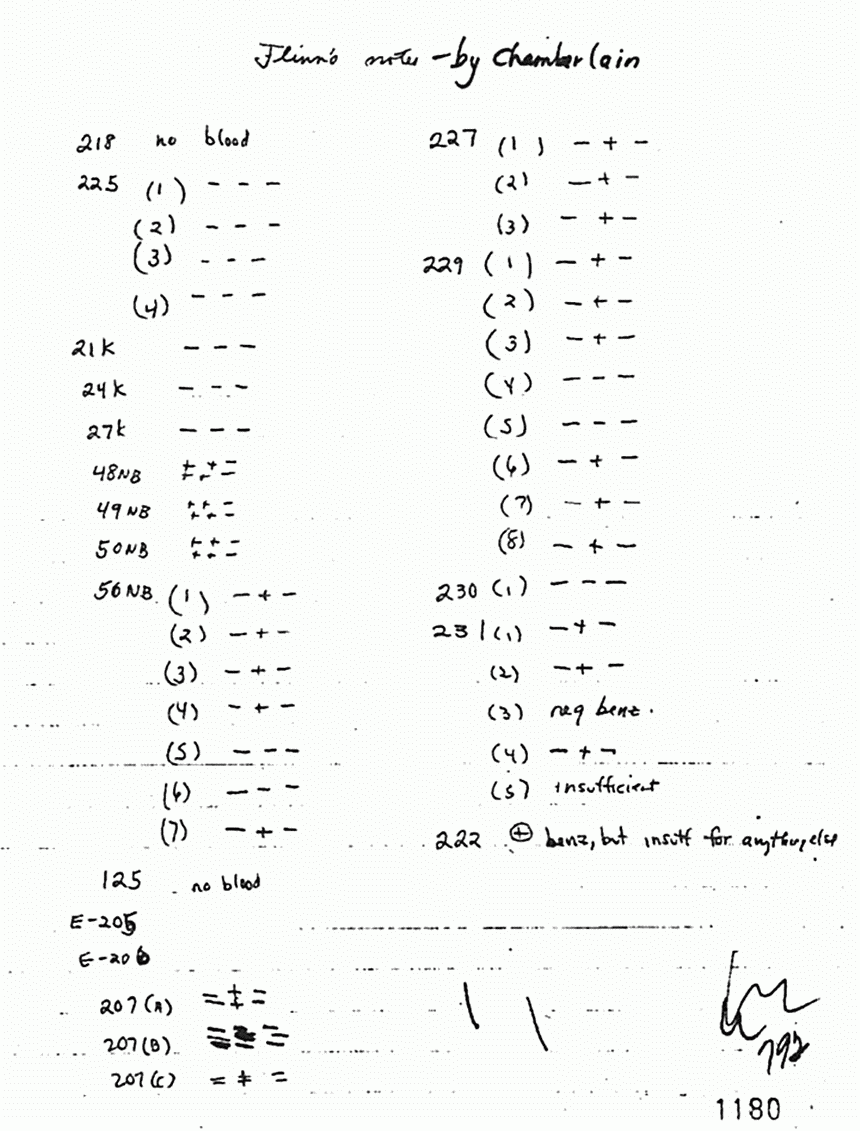 Flinn's notes - by Chamberlain
218 no blood
225 (1) - - -
(2) - - -
(3) - - -
(4) - - -
21K - - -
24K - - -
27K - - -
48NB
49NB
50NB
56NB (1) - + -
(2) - + -
(3) - + -
(4) - + -
(5) - - -
(6) - - -
(7) - + -
125 no blood
E-205
E-206
207(A)
207(B)
207(C)
227 (1) - + -
(2) - + -
(3) - + -
229 (1) - + -
(2) - + -
(3) - + -
(4) - - -
(5) - - -
(6) - + -
(7) - + -
(8) - + -
230 (1) - - -
231 (1) - + -
(2) - + -
(3) neg benz.
(4) - + -
(5) insufficient
222 ⊕ benz, but insuff for anything else
792
1180